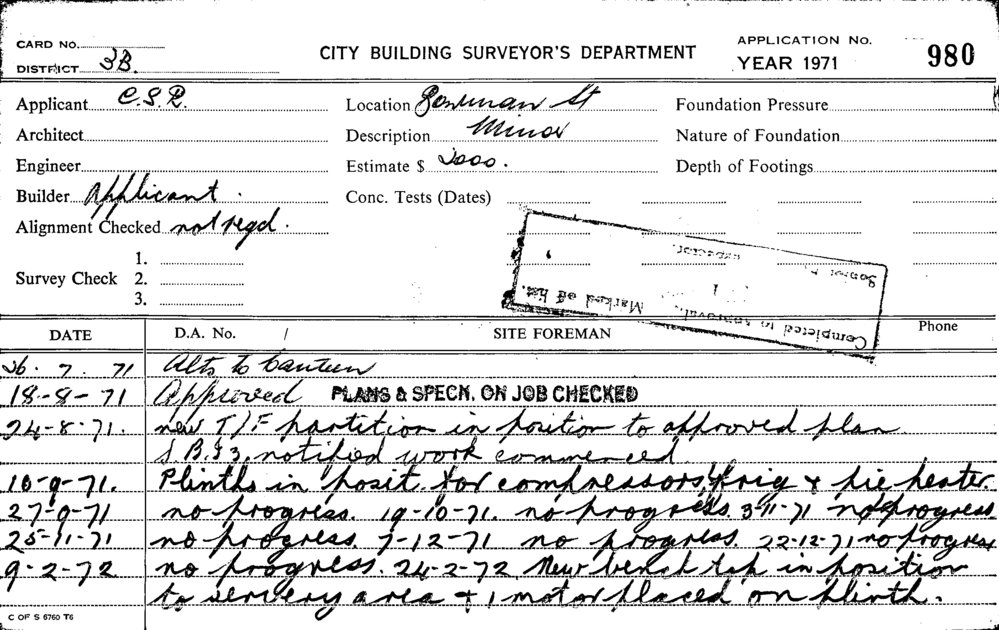 CARD No.
DISTRICT 3B.
CITY BUILDING SURVEYOR'S DEPARTMENT
APPLICATION No. 980
YEAR 1971
Applicant C.S.R.
Location Bowman St
Foundation Pressure
Architect
Description Minor
Nature of Foundation
Engineer
Estimate $ 2000.
Depth of Footings
Builder Applicant.
Conc. Tests (Dates)
Alignment Checked not reqd.
Survey Check 1.
2.
3.
Completed to approval. Marked off list.
Senior
DATE D.A. No. / SITE FOREMAN Phone
26. 7. 71 Alts to Canteen
18-8-71 Approved PLANS & SPECN. ON JOB CHECKED
24-8-71. new T/F partition in position to approved plan
notified work commenced
10-9-71. Plinths in posit. for compressors, frig & pie heater.
27-9-71 no progress. 19-10-71. no progress. 3-11-71 no progress
25-11-71 no progress. 7-12-71 no progress. 22-12-71 no progress
9-2-72 no progress. 24-2-72 New bench top in position
to servery area & 1 motor placed on plinth.
C OF S 6760 T6